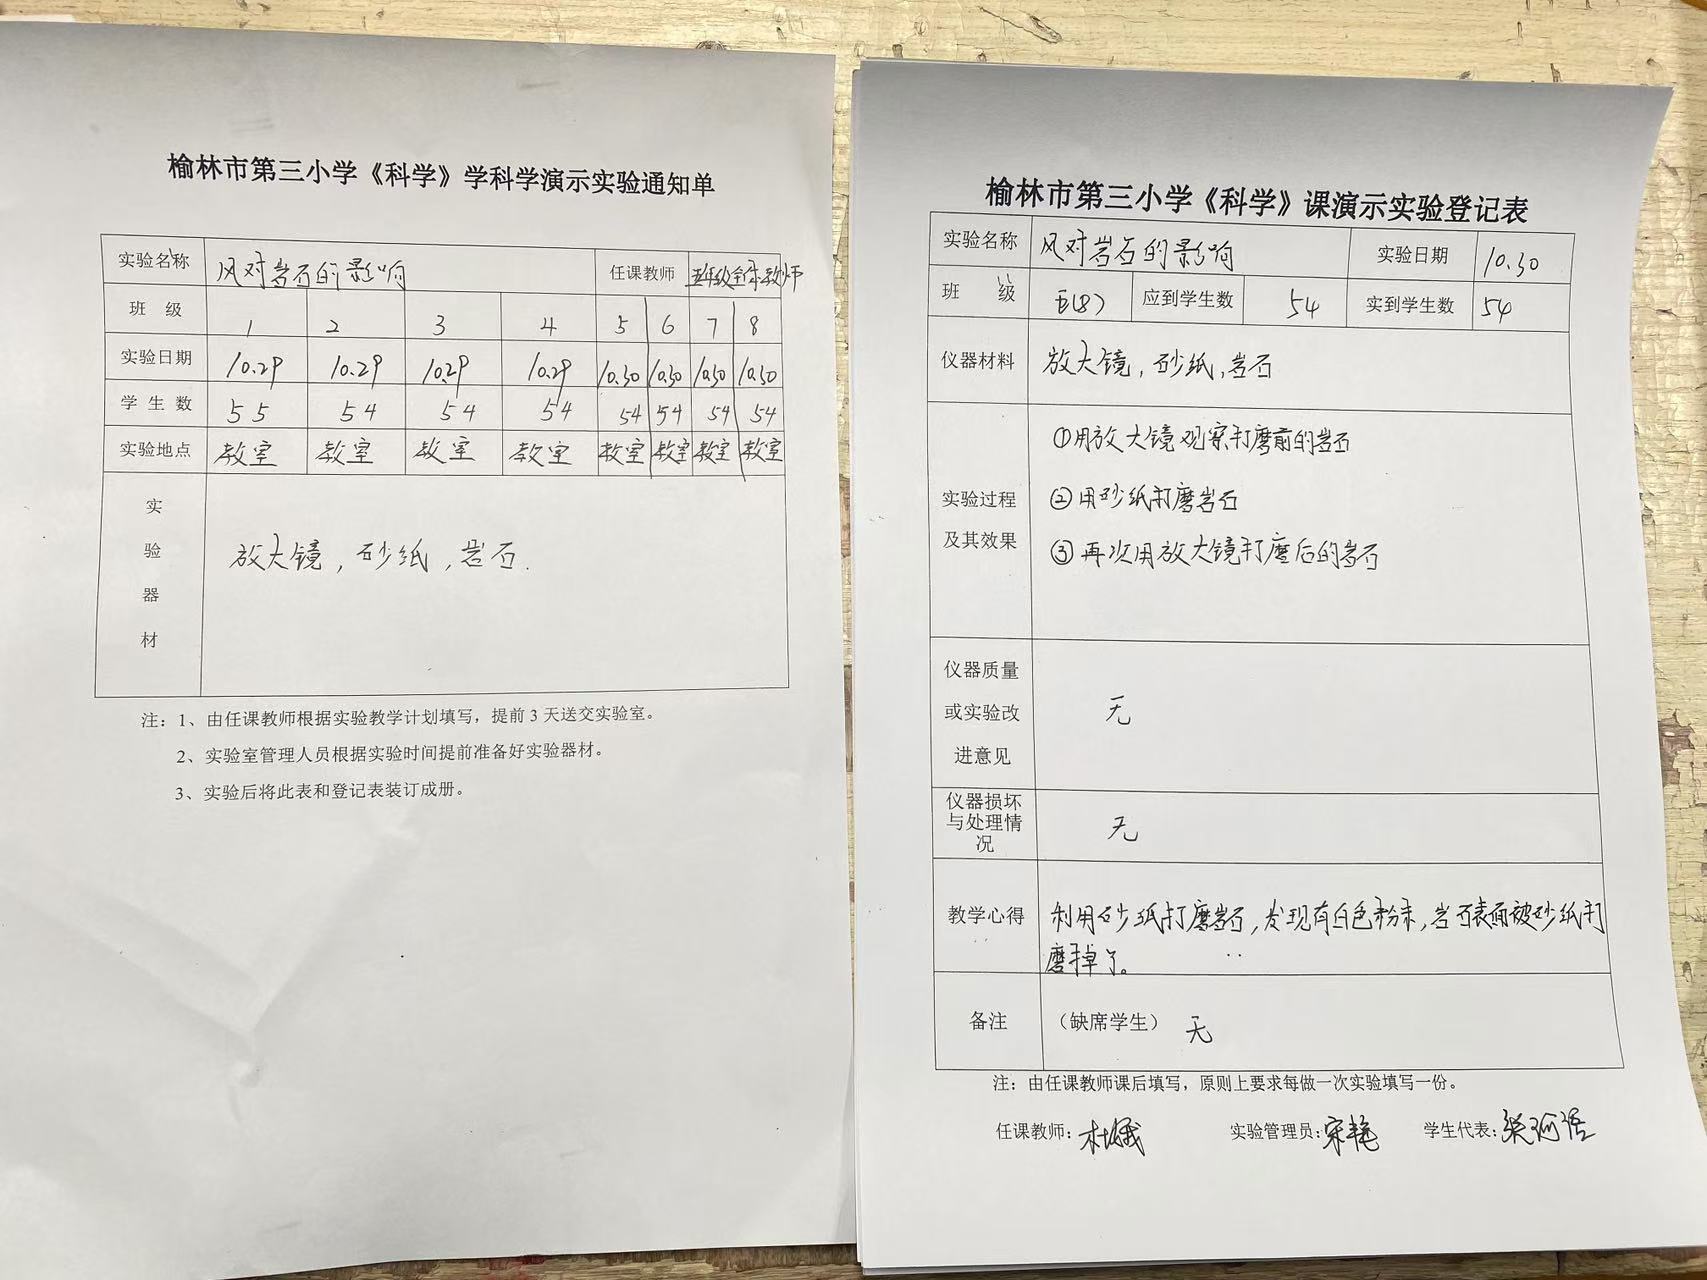 榆林市第三小学《科学》学科学演示实验通知单
实验名称 风对岩石的影响 任课教师 五年级全体教师
班 级 1 2 3 4 5 6 7 8
实验日期 10.29 10.29 10.29 10.29 10.30 10.30 10.30 10.30
学 生 数 55 54 54 54 54 54 54 54
实验地点 教室 教室 教室 教室 教室 教室 教室 教室
实
验
器
材
放大镜，砂纸，岩石．
注：1、由任课教师根据实验教学计划填写，提前3天送交实验室。
2、实验室管理人员根据实验时间提前准备好实验器材。
3、实验后将此表和登记表装订成册。
榆林市第三小学《科学》课演示实验登记表
实验名称 风对岩石的影响 实验日期 10.30
班 级 五(8) 应到学生数 54 实到学生数 54
仪器材料 放大镜，砂纸，岩石
实验过程
及其效果
①用放大镜观察打磨前的岩石
②用砂纸打磨岩石
③再次用放大镜打磨后的岩石
仪器质量
或实验改
进意见
无
仪器损坏
与处理情
况
无
教学心得
利用砂纸打磨岩石，发现有白色粉末，岩石表面被砂纸打
磨掉了。
备注 （缺席学生） 无
注：由任课教师课后填写，原则上要求每做一次实验填写一份。
任课教师： 实验管理员：宋艳 学生代表：